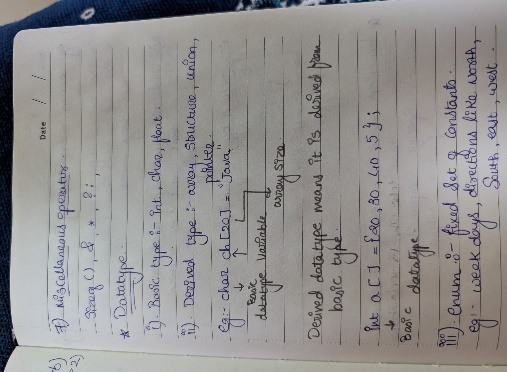 Date / /
7) Miscellaneous operator
Sizeof(), &, *, ?: ,
* Datatype.
i) Basic type :- Int, char, float.
ii) Derived type :- array, structure, union,
pointer.
eg:- char ch[20] = "Java"
Basic
datatype Variable
array size
Derived datatype means it is derived from
basic type.
int a[] = {20, 30, 40, 5};
Basic datatype.
iii) enum :- fixed set of constants.
eg:- week days, directions like north,
South, east, west.